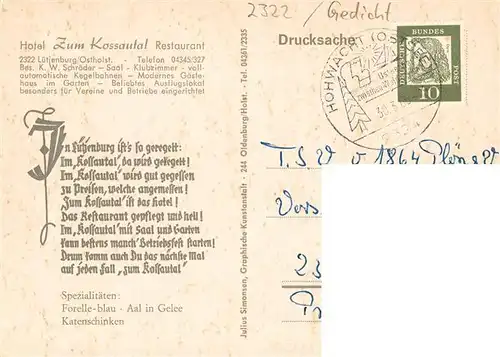 2322 / Gedicht
Hotel Zum Kossautal Restaurant
2322 Lütjenburg/Ostholst. - Telefon 04345/327
Bes. K. W. Schröder - Saal - Klubzimmer - voll-
automatische Kegelbahnen - Modernes Gäste-
haus im Garten - Beliebtes Ausflugslokal
besonders für Vereine und Betriebe eingerichtet
In Lütjenburg ist's so geregelt:
Im „Kossautal“ da wird gekegelt!
Im „Kossautal“ wird gut gegessen
zu Preisen, welche angemessen!
Zum Kossautal ist das Hotel!
Das Restaurant gepflegt und hell!
Im „Kossautal“ mit Saal und Garten
kann bestens manch' Betriebsfest starten!
Drum komm auch Du das nächste Mal
auf jeden Fall „zum Kossautal“
Spezialitäten:
Forelle-blau - Aal in Gelee
Katenschinken
Julius Simonsen, Graphische Kunstanstalt - 244 Oldenburg/Holst. - Tel. 04361/2335
Drucksache
HOHWACHT (OSTSEE)
DEUTSCHE BUNDESPOST
10
T.S.V v 1864 Plön
Vors
23